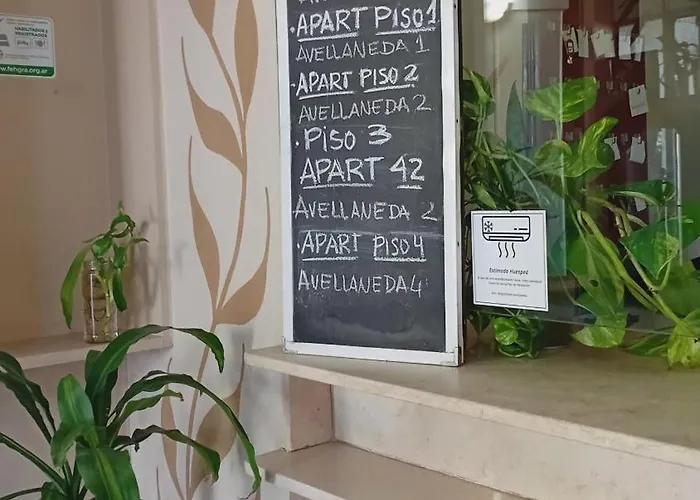 HABILITADOS Y
REGISTRADOS
www.fehgra.org.ar
• APART PISO 1
AVELLANEDA 1
• APART PISO 2
AVELLANEDA 2
• PISO 3
APART 42
AVELLANEDA 2
• APART PISO 4
AVELLANEDA 4
Estimado Huésped